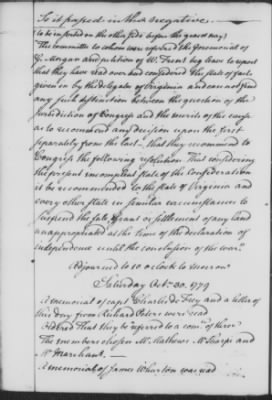 So it passed in the negative.
(to be inserted on the other side before the yeas & nays)
The committee to whom were referred the memorial of
G. Morgan and petition of W. Trent beg leave to report
that they have read over and considered the state of facts
given in by the delegates of Virginia and cannot find
any such distinction between the question of the
jurisdiction of Congress and the merits of the cause
as to recommend any decision upon the first
separately from the last — that they recommend to
Congress the following resolution That considering
the present incompleat state of the Confederation
it be recommended to the state of Virginia and
every other state in similar circumstances to
suspend the sale, grant or settlement of any land
unappropriated at the time of the declaration of
independence until the conclusion of the war.
Adjourned to 10 o Clock to morrow
Saturday Octr. 30. 1779
A memorial of capt Charles de Frey and a letter of
this day from Richard Peters were read
Ordered That they be referred to a comee. of three
The members chosen Mr Mathews Mr Sharpe and
Mr Marchant. —
A memorial of James Wharton was read